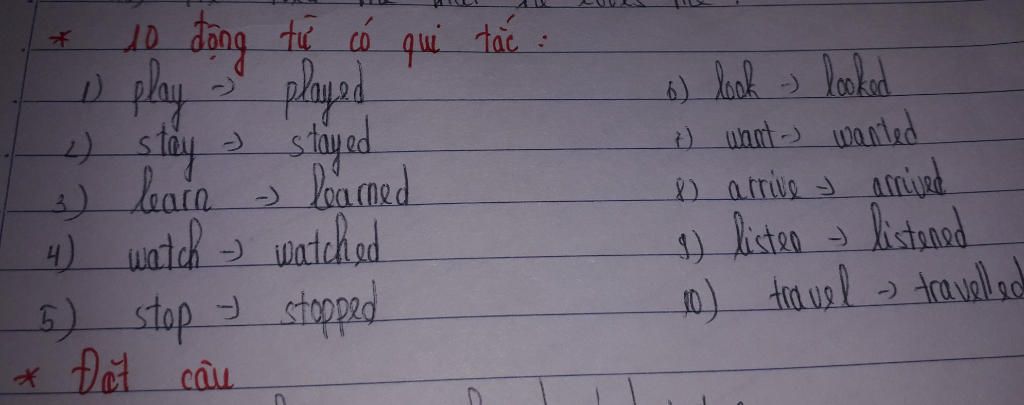 * 10 động từ có qui tắc :
1) play -> played
2) stay -> stayed
3) learn -> learned
4) watch -> watched
5) stop -> stopped
6) look -> looked
7) want -> wanted
8) arrive -> arrived
9) listen -> listened
10) travel -> travelled
* Đặt câu